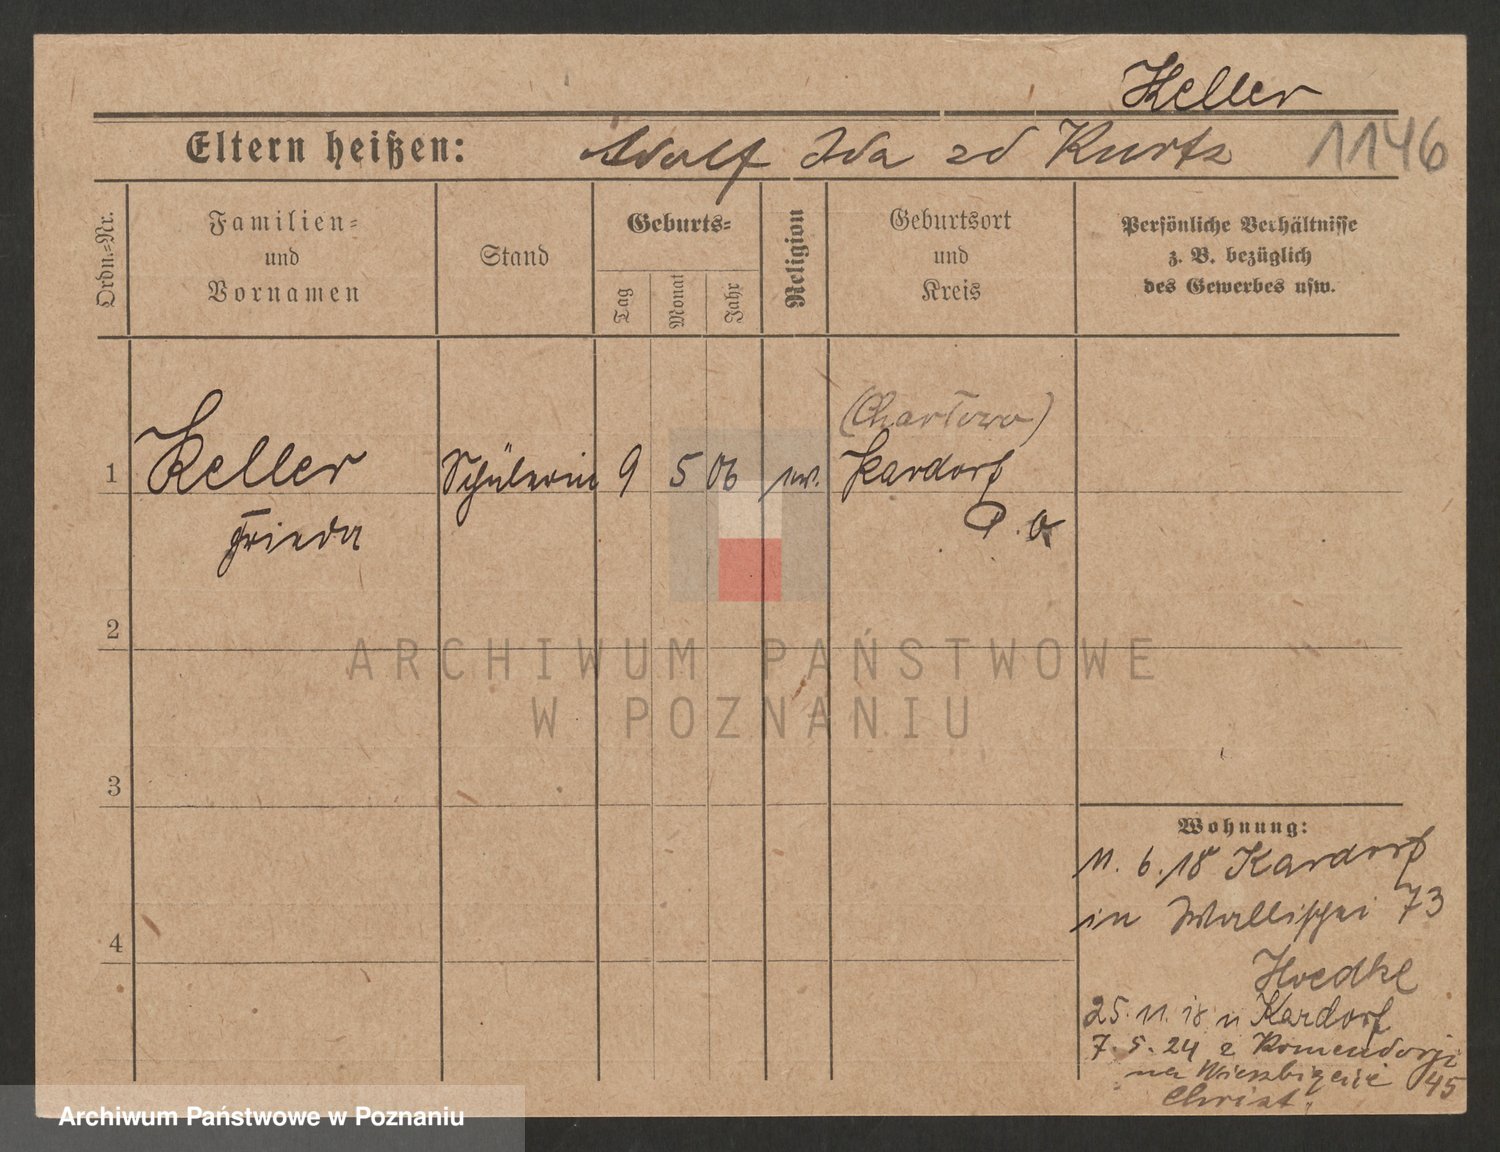 Keller
Eltern heißen: Adolf Ida zd Kurtz 1146
Ordn.=Nr.
Familien=
und
Vornamen
Stand
Geburts=
Tag
Monat
Jahr
Religion
Geburtsort
und
Kreis
Persönliche Verhältnisse
z. B. bezüglich
des Gewerbes usw.
(Chartowo)
1 Keller Schülerin 9 5 06 ev. Kardorf
Frieda P. O.
2
ARCHIWUM PAŃSTWOWE
W POZNANIU
3
Wohnung:
11. 6. 18 Kardorf
in Wallischei 73
4
25. 11. 18 n Kardorf
7. 5. 24 z Komendorji
na Wierzbięcice 45
Christ.
Archiwum Państwowe w Poznaniu